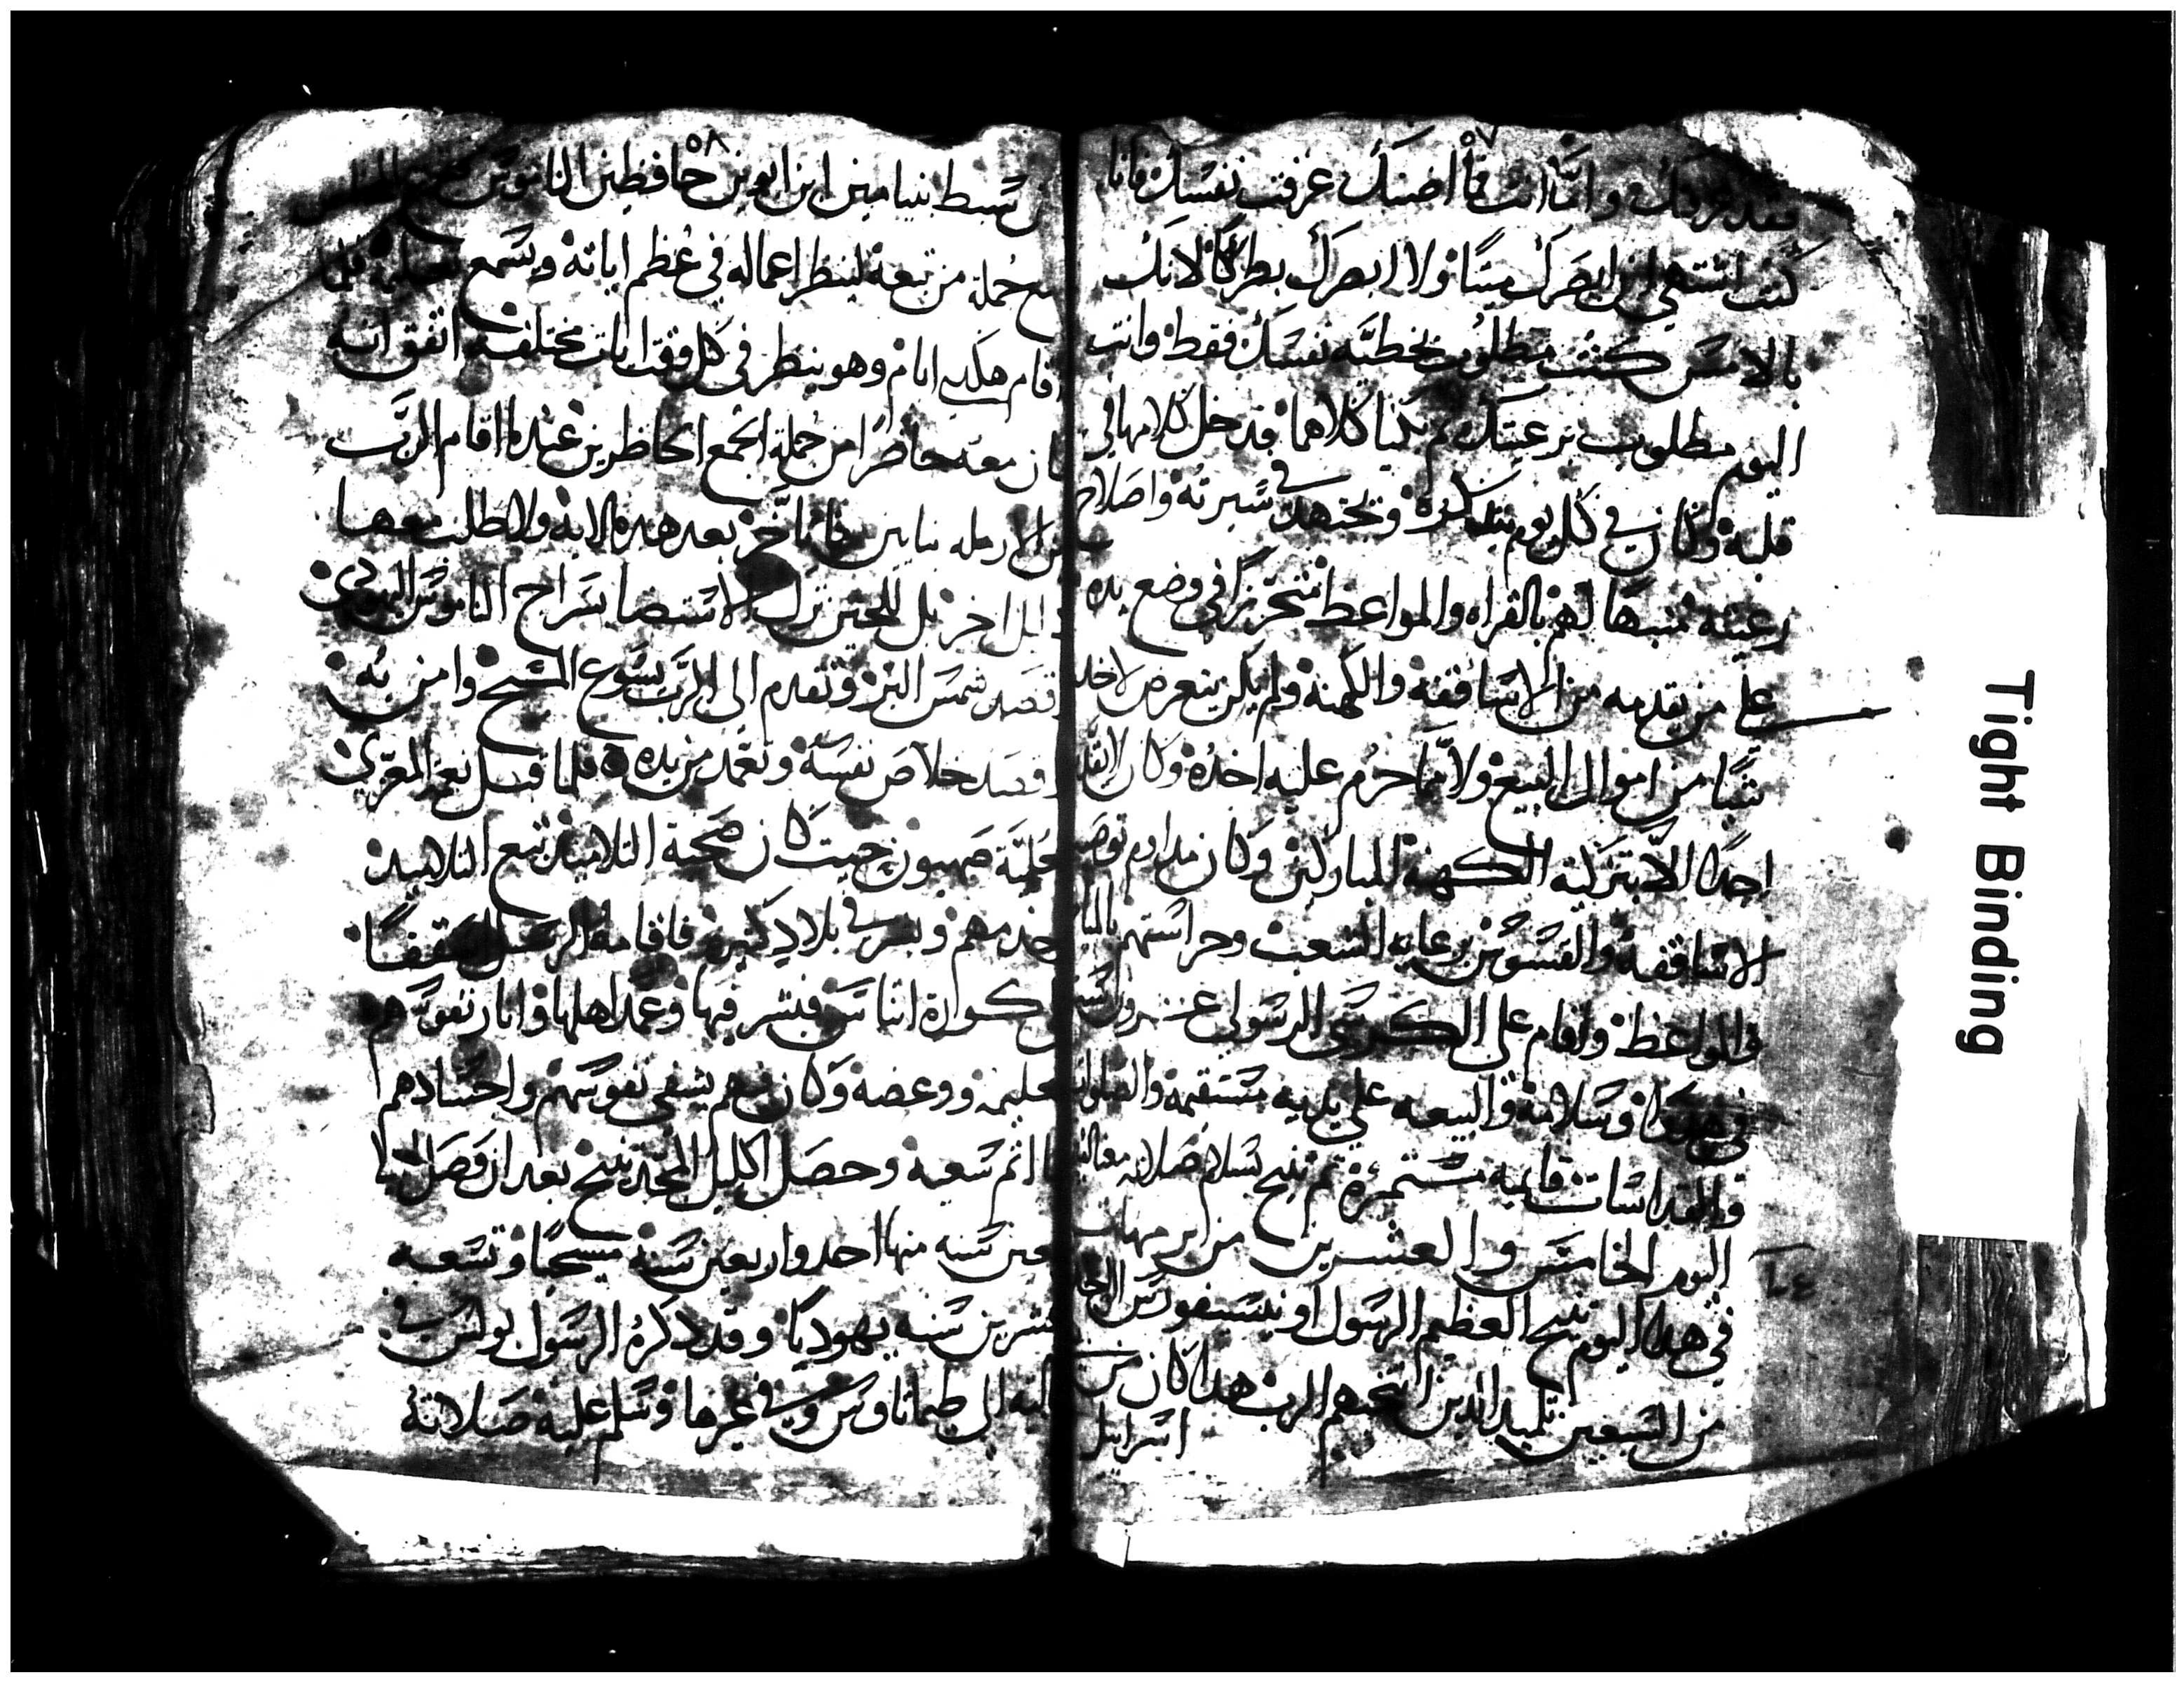 ٥٧
فقد عرفتك وامّا انت فما اضنك عرفت نفسك فانا
كنت اشتهي ان ابصرك ميتًا ولا ابصرك بطركًا لانك
بالامس كنت مطلوب بخطيّه نفسك فقط وانت
اليوم مطلوب برعيتك ثم بكيا كلاهما فدخل كلامها في
قلبه وكان في كل يوم يتذكره ويجتهد في سيرته واصلاح
رعيته منبهًا لهم بالقراه والمواعظ متحرزًا في وضع يده
علي من يقدمه من الاساقفه والكهنه ولم يكن يتعرض لاخد
شيًا من اموال البيع ولا ممّا حرم عليه اخده وكان لا يقدم
احدًا الا بتزكية الكهنه المباركين وكان مداوم توصيه
الاساقفه والقسوس برعاية الشعب وحراستهم بالمنابر
والمواعظ واقام علي الكرسي الرسولي عشرون سنه
في هدوا وسلامه والبيعه علي يديه مستقيمه والصلوات
والقداسات قايمه مستمرة ثم تنيح بسلام صلاته معنا امين
اليوم الخامس والعشرين من برمهات
في هدا اليوم تنيح العظيم الرسول اونيسيفورس احد
من السبعين تلميد الدين انتخبهم الرب هدا كان من
اسراييل
٥٨
من سبط بنيامين ابن ابوين حافظين الناموس فتبع المخلص
مع جملة من تبعه لينظر اعماله في عظم اياته ويسمع تعليمه فلما
اقام هكدي ايام وهو ينظر في كل وقت ايات مختلفه اتفق انه
كان معه حاضرًا من جملة الجمع الحاظرين عنده لما اقام الرب
ابن الارمله بنايين فما تأخر بعد هده الايه ولا طلب معها
دليل اخر بل للحين ترك الاستضا بسراج الناموس اليهودي
وقصد شمس البر وتقدم الي الرب يسوع المسيح وامن به
وقصد خلاص نفسه وتعمد من يده فلما قبل نعمة المعزي
بعلية صهيون حيث كان صحبة التلاميد تبع التلاميد
وخدمهم وبشر في بلاد كثيره فاقامه الرسل اسقفًا
علي كوراة اناس فبشر فيها وعمد اهلها وانار نفوسهم
بتعليمه ووعضه وكان فيهم يشفي نفوسهم واجسادهم
لما اتم سعيه وحصل اكليل المجد تنيح بعد ان وصل الي
سبعين سنه منها احد واربعين سنه مسيحيًا وتسعه
وعشرين سنه يهوديًا وقد دكره الرسول بولس في
رسالته الي طيماثاوس وفي غيرها وسلم عليه صلاته